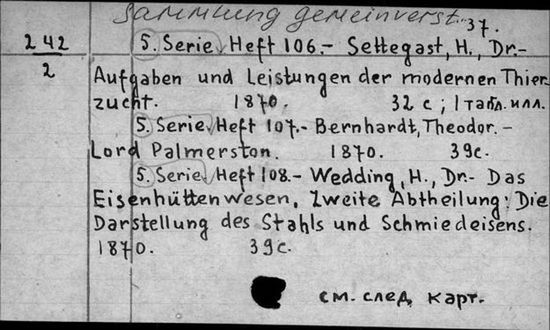 Sammlung gemeinverst... 37.
242
2
5. Serie, Heft 106.- Settegast, H., Dr.-
Aufgaben und Leistungen der modernen Thier
zucht. 1870. 32 с ; 1 табл. илл.
5. Serie, Heft 107.- Bernhardt, Theodor. -
Lord Palmerston. 1870. 39с.
5. Serie, Heft 108.- Wedding, H., Dr.- Das
Eisenhüttenwesen, Zweite Abtheilung: Die
Darstellung des Stahls und Schmiedeisens.
1870. 39с.
см. след. карт.